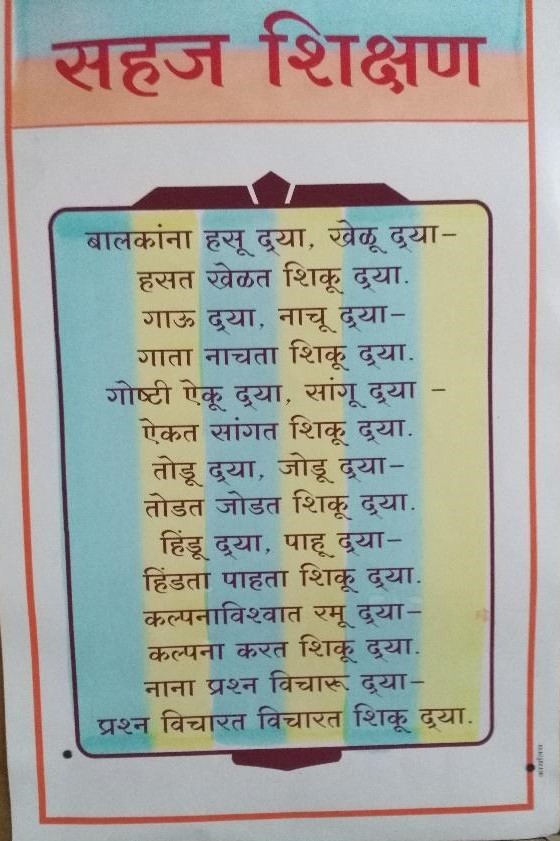 सहज शिक्षण
बालकांना हसू द्‌या, खेळू द्‌या–
हसत खेळत शिकू द्‌या.
गाऊ द्‌या, नाचू द्‌या–
गाता नाचता शिकू द्‌या.
गोष्टी ऐकू द्‌या, सांगू द्‌या –
ऐकत सांगत शिकू द्‌या.
तोडू द्‌या, जोडू द्‌या–
तोडत जोडत शिकू द्‌या.
हिंडू द्‌या, पाहू द्‌या–
हिंडता पाहता शिकू द्‌या.
कल्पनाविश्वात रमू द्‌या–
कल्पना करत शिकू द्‌या.
नाना प्रश्न विचारू द्‌या–
प्रश्न विचारत विचारत शिकू द्‌या.